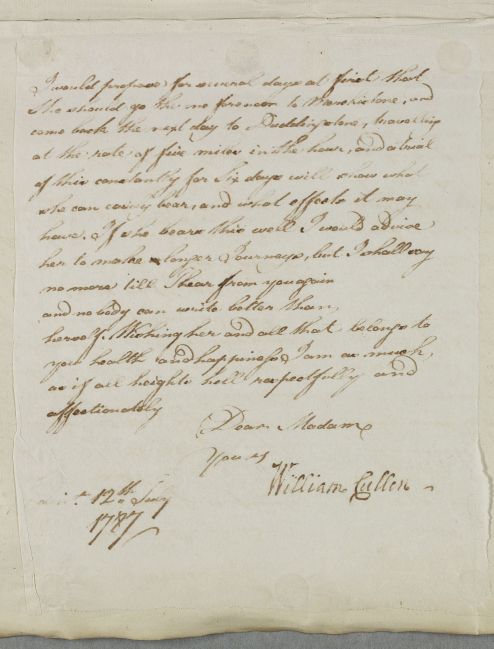 I would propose for several days at first that
She should go the no forenoon to Haverstone, and
come back the next day to Duddingstone, travelling
at the rate of five miles in the hour, and a trial
of this constantly for Six days will show what
she can easily bear, and what effects it may
have. If she bears this well I would advise
her to make longer Journeys, but I shall say
no more till I hear from you again
and no body can write better than
herself. Wishing her and all that belongs to
you health and happiness, I am as much,
as if all heights hell respectfully and
affectionately
Dear Madam
Yours
William Cullen
12th July
1787